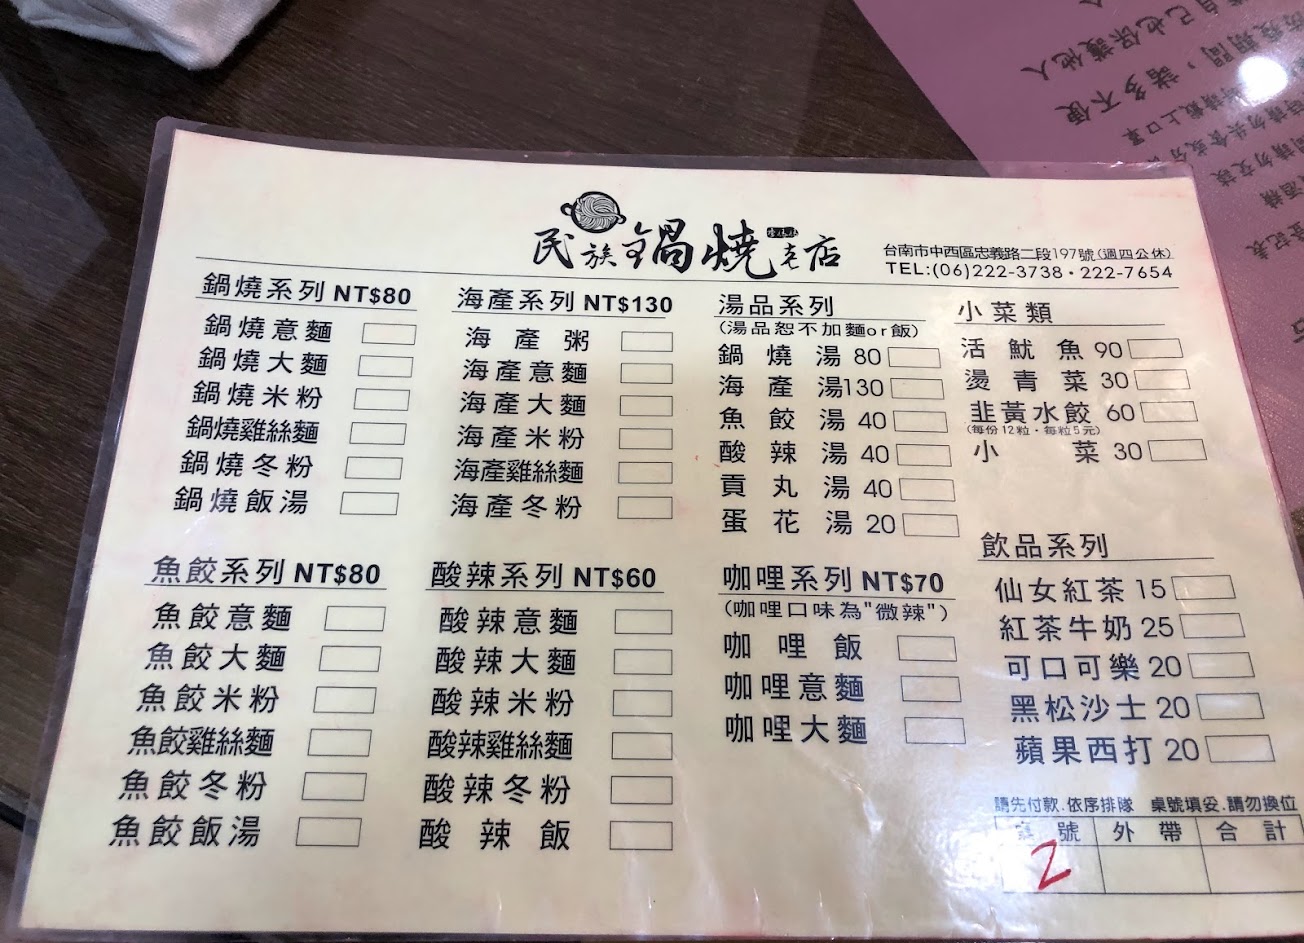 民族鍋燒老店
台南市中西區忠義路二段197號(週四公休)
TEL:(06)222-3738・222-7654
鍋燒系列 NT$80
鍋燒意麵
鍋燒大麵
鍋燒米粉
鍋燒雞絲麵
鍋燒冬粉
鍋燒飯湯
海產系列 NT$130
海產粥
海產意麵
海產大麵
海產米粉
海產雞絲麵
海產冬粉
湯品系列
(湯品恕不加麵or飯)
鍋燒湯 80
海產湯130
魚餃湯 40
酸辣湯 40
貢丸湯 40
蛋花湯 20
小菜類
活魷魚 90
燙青菜 30
韭黃水餃 60
(每份12粒・每粒5元)
小菜 30
魚餃系列 NT$80
魚餃意麵
魚餃大麵
魚餃米粉
魚餃雞絲麵
魚餃冬粉
魚餃飯湯
酸辣系列 NT$60
酸辣意麵
酸辣大麵
酸辣米粉
酸辣雞絲麵
酸辣冬粉
酸辣飯
咖哩系列 NT$70
(咖哩口味為"微辣")
咖哩飯
咖哩意麵
咖哩大麵
飲品系列
仙女紅茶 15
紅茶牛奶 25
可口可樂 20
黑松沙士 20
蘋果西打 20
請先付款.依序排隊 桌號填妥.請勿換位
桌號 外帶 合計
2
自己也保護他人
期間，諸多不便
戴上口罩
請勿共食或分
請勿交談
酒精
登記表
店